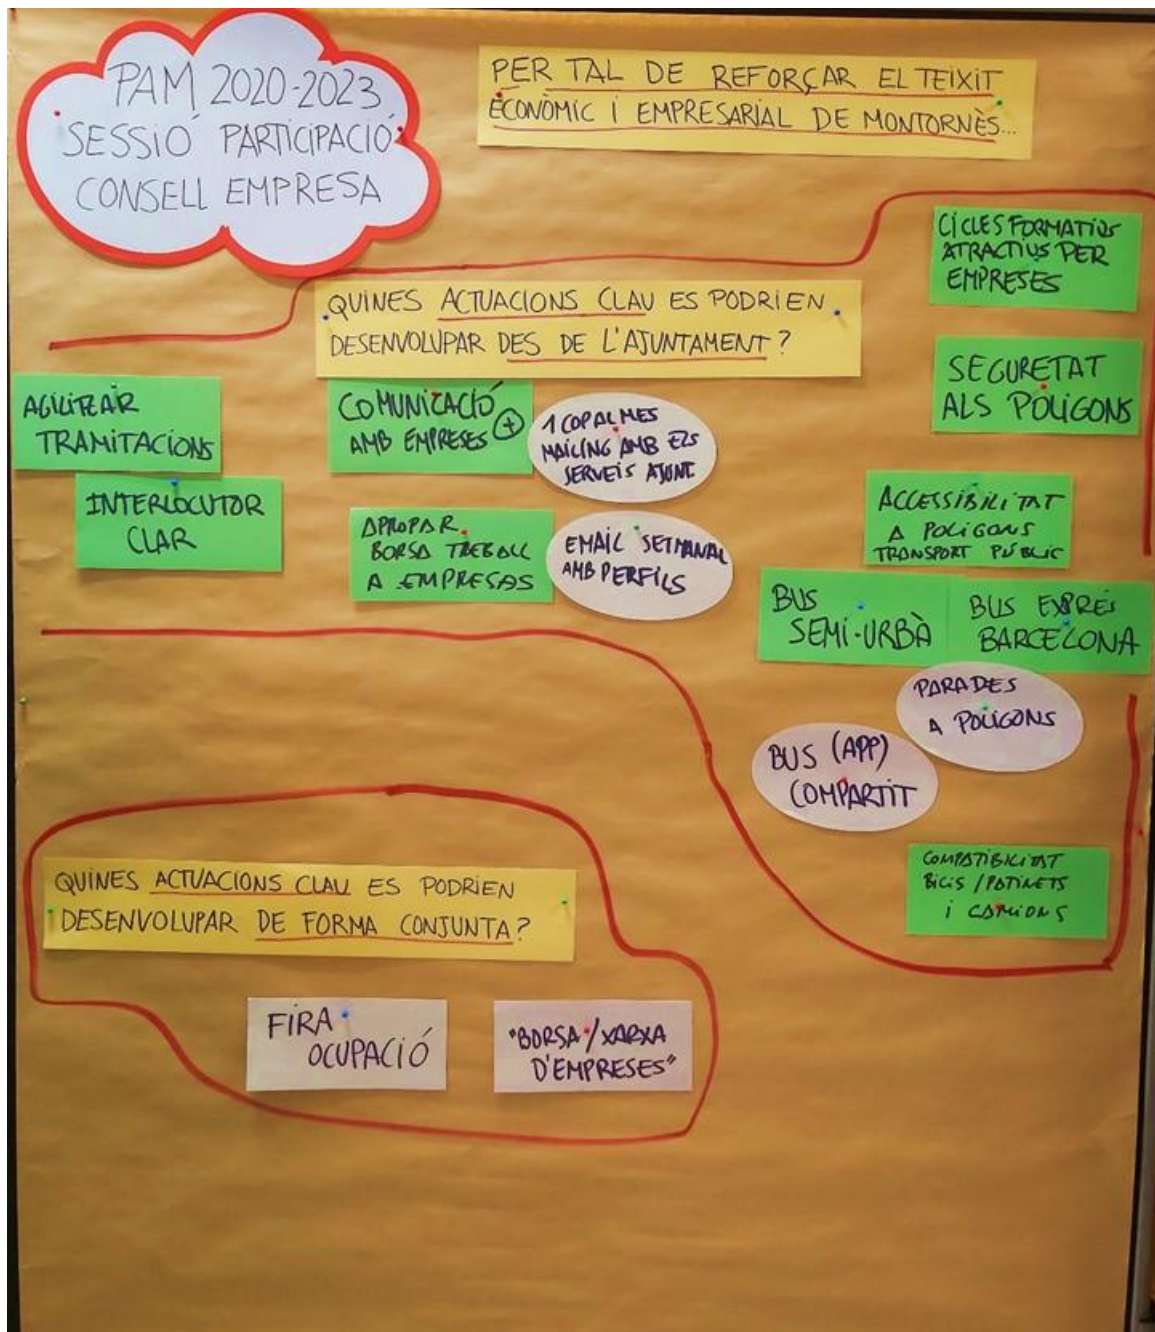 PAM 2020-2023
SESSIÓ PARTICIPACIÓ
CONSELL EMPRESA
PER TAL DE REFORÇAR EL TEIXIT
ECONÒMIC I EMPRESARIAL DE MONTORNÈS...
QUINES ACTUACIONS CLAU ES PODRIEN
DESENVOLUPAR DES DE L'AJUNTAMENT?
AGILITZAR
TRAMITACIONS
INTERLOCUTOR
CLAR
COMUNICACIÓ
AMB EMPRESES +
1 COP AL MES
MAILING AMB ELS
SERVEIS AJUNT.
APROPAR
BORSA TREBALL
A EMPRESAS
EMAIL SETMANAL
AMB PERFILS
CICLES FORMATIUS
ATRACTIUS PER
EMPRESES
SEGURETAT
ALS POLÍGONS
ACCESSIBILITAT
A POLÍGONS
TRANSPORT PÚBLIC
BUS
SEMI-URBÀ
BUS EXPRÉS
BARCELONA
PARADES
A POLÍGONS
BUS (APP)
COMPARTIT
COMPATIBILITAT
BICIS / PATINETS
I CAMIONS
QUINES ACTUACIONS CLAU ES PODRIEN
DESENVOLUPAR DE FORMA CONJUNTA?
FIRA
OCUPACIÓ
"BORSA/XARXA
D'EMPRESES"